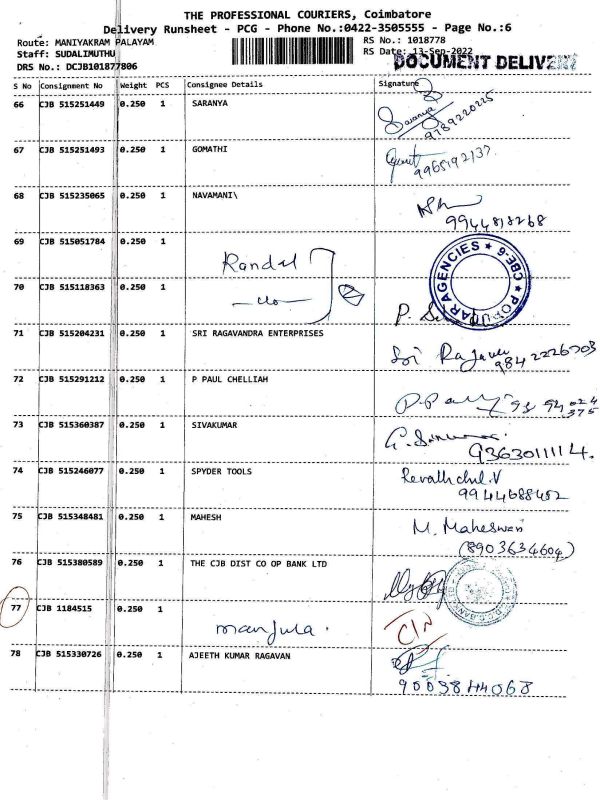 THE PROFESSIONAL COURIERS, Coimbatore
Delivery Runsheet - PCG - Phone No.:0422-3505555 - Page No.:6
Route: MANIYAKRAM PALAYAM
RS No.: 1018778
Staff: SUDALIMUTHU
RS Date: 13-Sep-2022
DOCUMENT DELIVER
DRS No.: DCJB101877806
S No Consignment No Weight PCS Consignee Details Signature
66 CJB 515251449 0.250 1 SARANYA
Saranya
9789220225
67 CJB 515251493 0.250 1 GOMATHI
9965192137
68 CJB 515235065 0.250 1 NAVAMANI\
9944818268
69 CJB 515051784 0.250 1
POPULAR AGENCIES ★ CBE-6 ★
70 CJB 515118363 0.250 1
71 CJB 515204231 0.250 1 SRI RAGAVANDRA ENTERPRISES
9842226703
72 CJB 515291212 0.250 1 P PAUL CHELLIAH
73 CJB 515360387 0.250 1 SIVAKUMAR
9363011114.
74 CJB 515246077 0.250 1 SPYDER TOOLS
9944688452
75 CJB 515348481 0.250 1 MAHESH
M. Maheswari
(8903634604)
76 CJB 515380589 0.250 1 THE CJB DIST CO OP BANK LTD
77 CJB 1184515 0.250 1
manjula.
78 CJB 515330726 0.250 1 AJEETH KUMAR RAGAVAN
9003844068